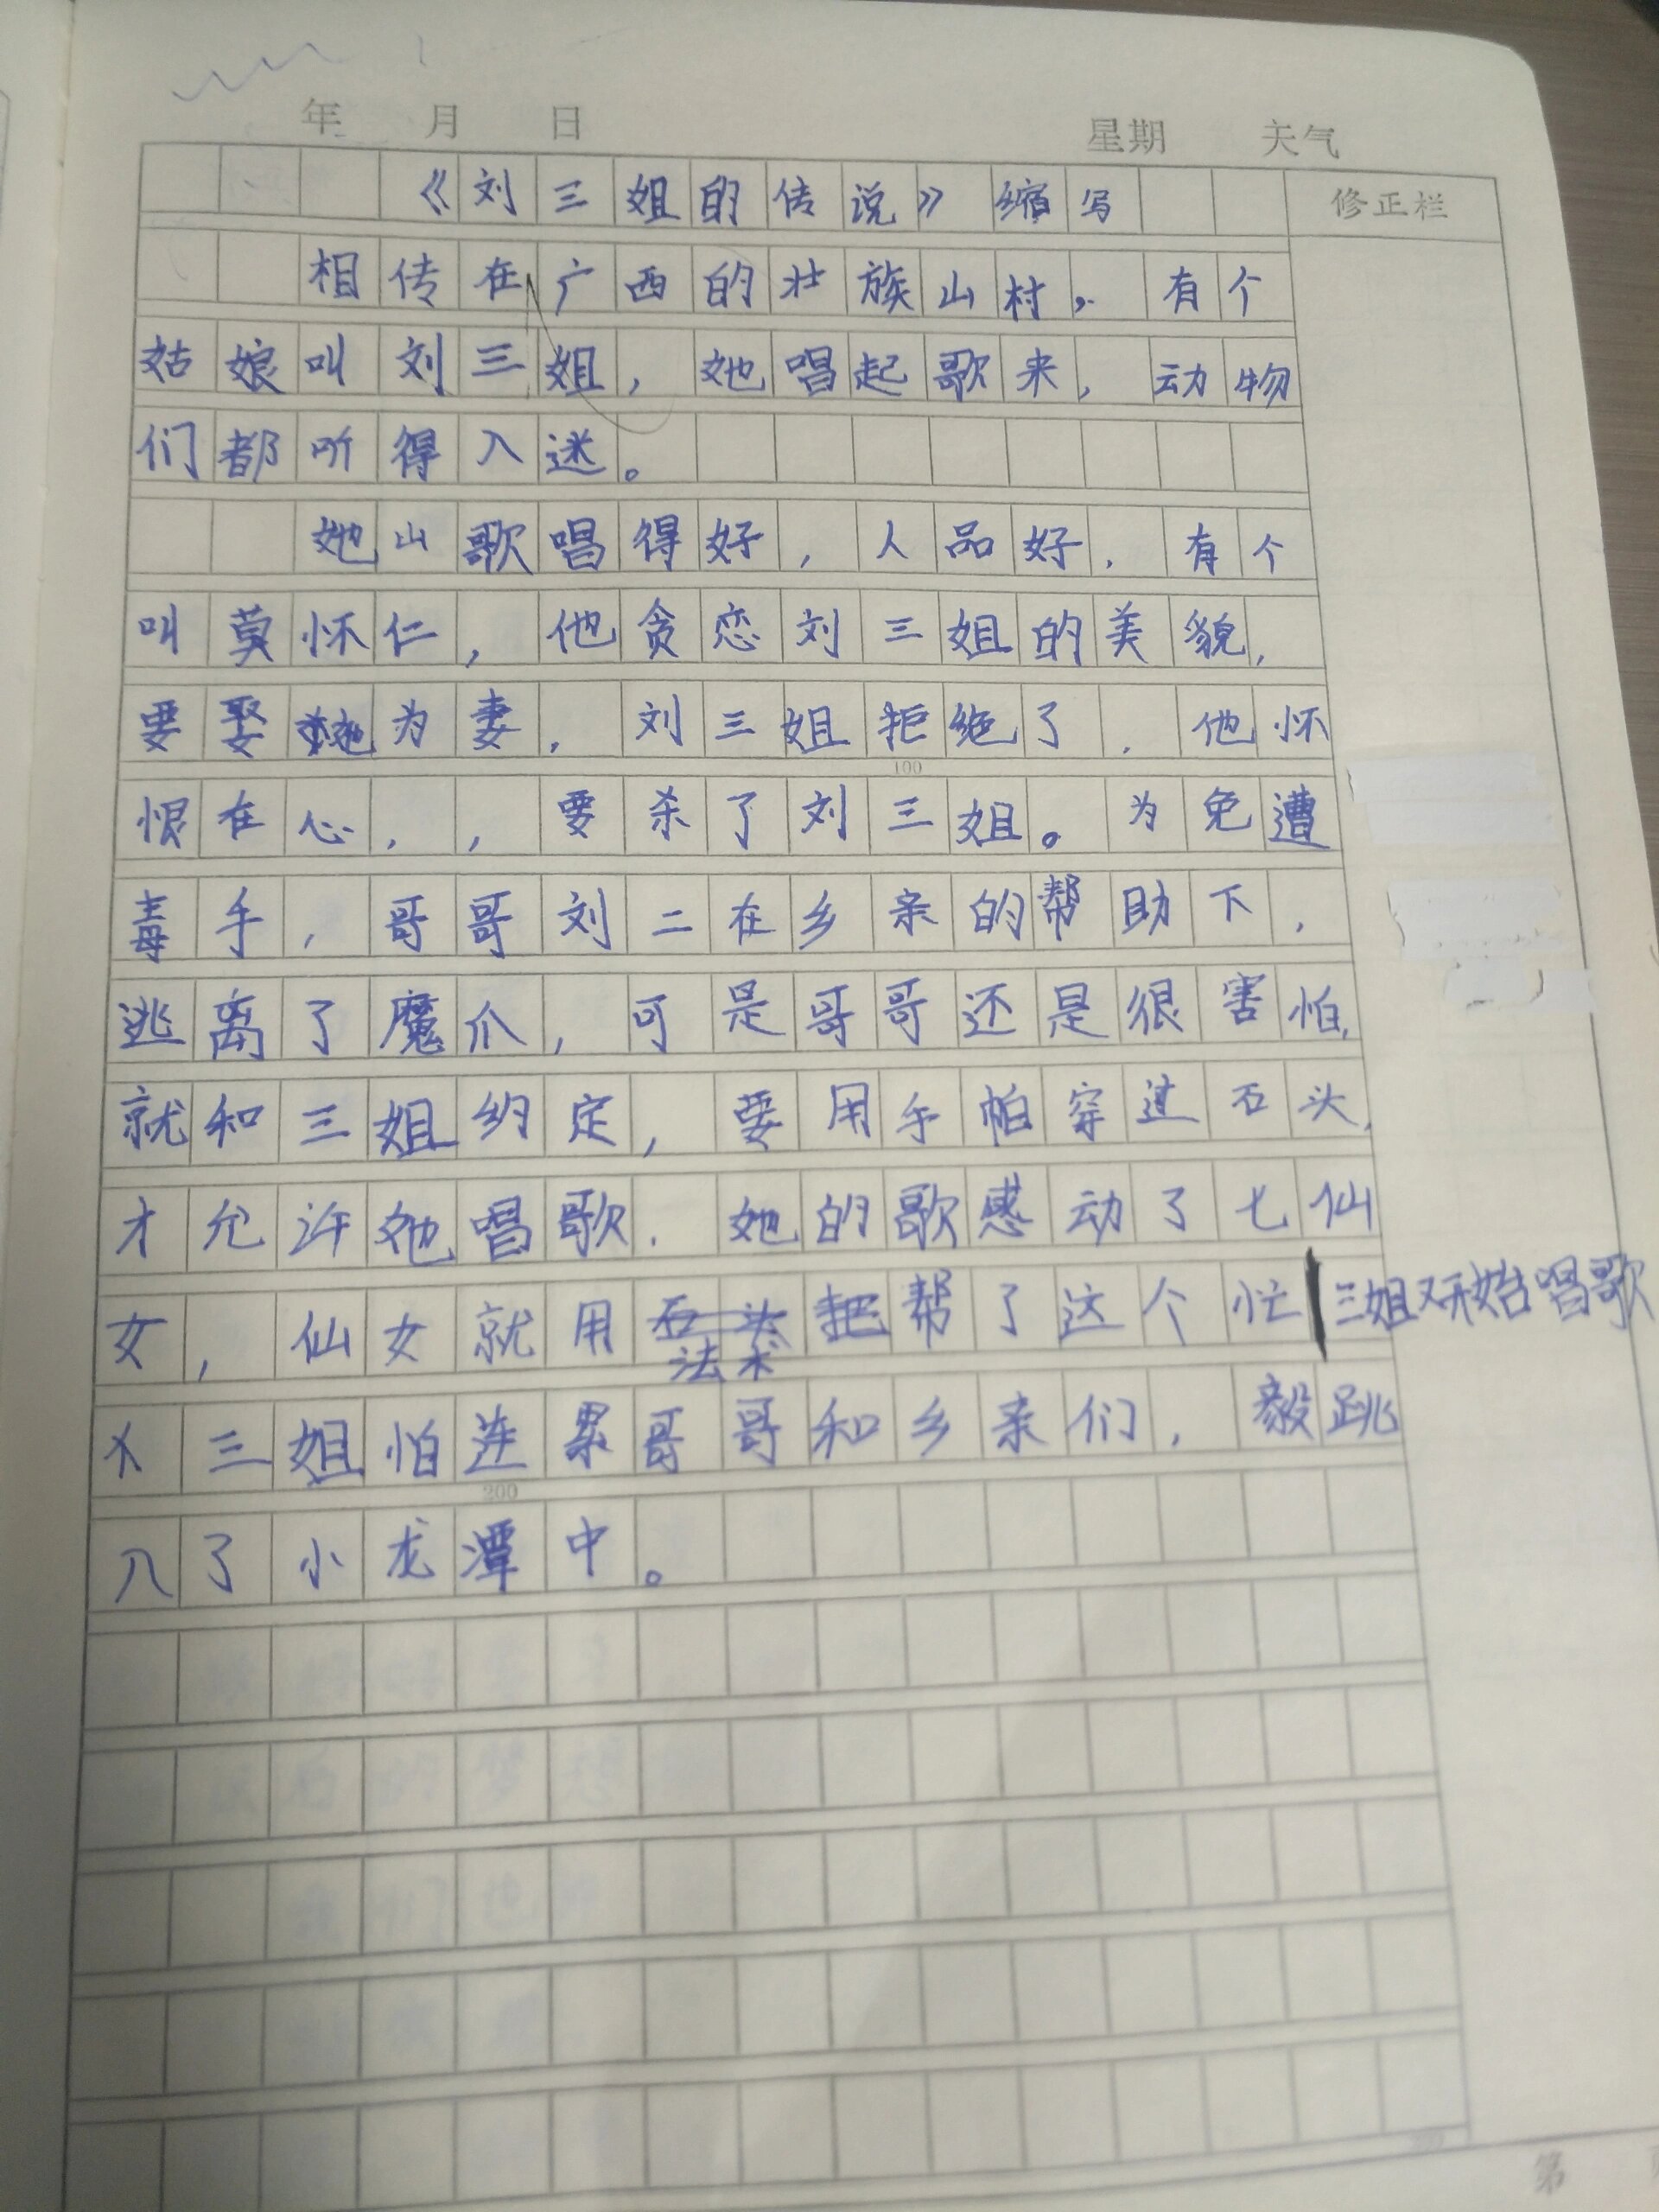 年 月 日 星期 天气
《刘三姐的传说》缩写 修正栏
相传在广西的壮族山村，有个
姑娘叫刘三姐，她唱起歌来，动物
们都听得入迷。
她山歌唱得好，人品好，有个
叫莫怀仁，他贪恋刘三姐的美貌，
要娶她为妻，刘三姐拒绝了，他怀
100
恨在心，，要杀了刘三姐。为免遭
毒手，哥哥刘二在乡亲的帮助下，
逃离了魔爪，可是哥哥还是很害怕，
就和三姐约定，要用手帕穿过石头，
才允许她唱歌．她的歌感动了七仙
女，仙女就用石头把帮了这个忙 三姐又开始唱歌
法术
三姐怕连累哥哥和乡亲们，毅跳
200
入了小龙潭中。
第